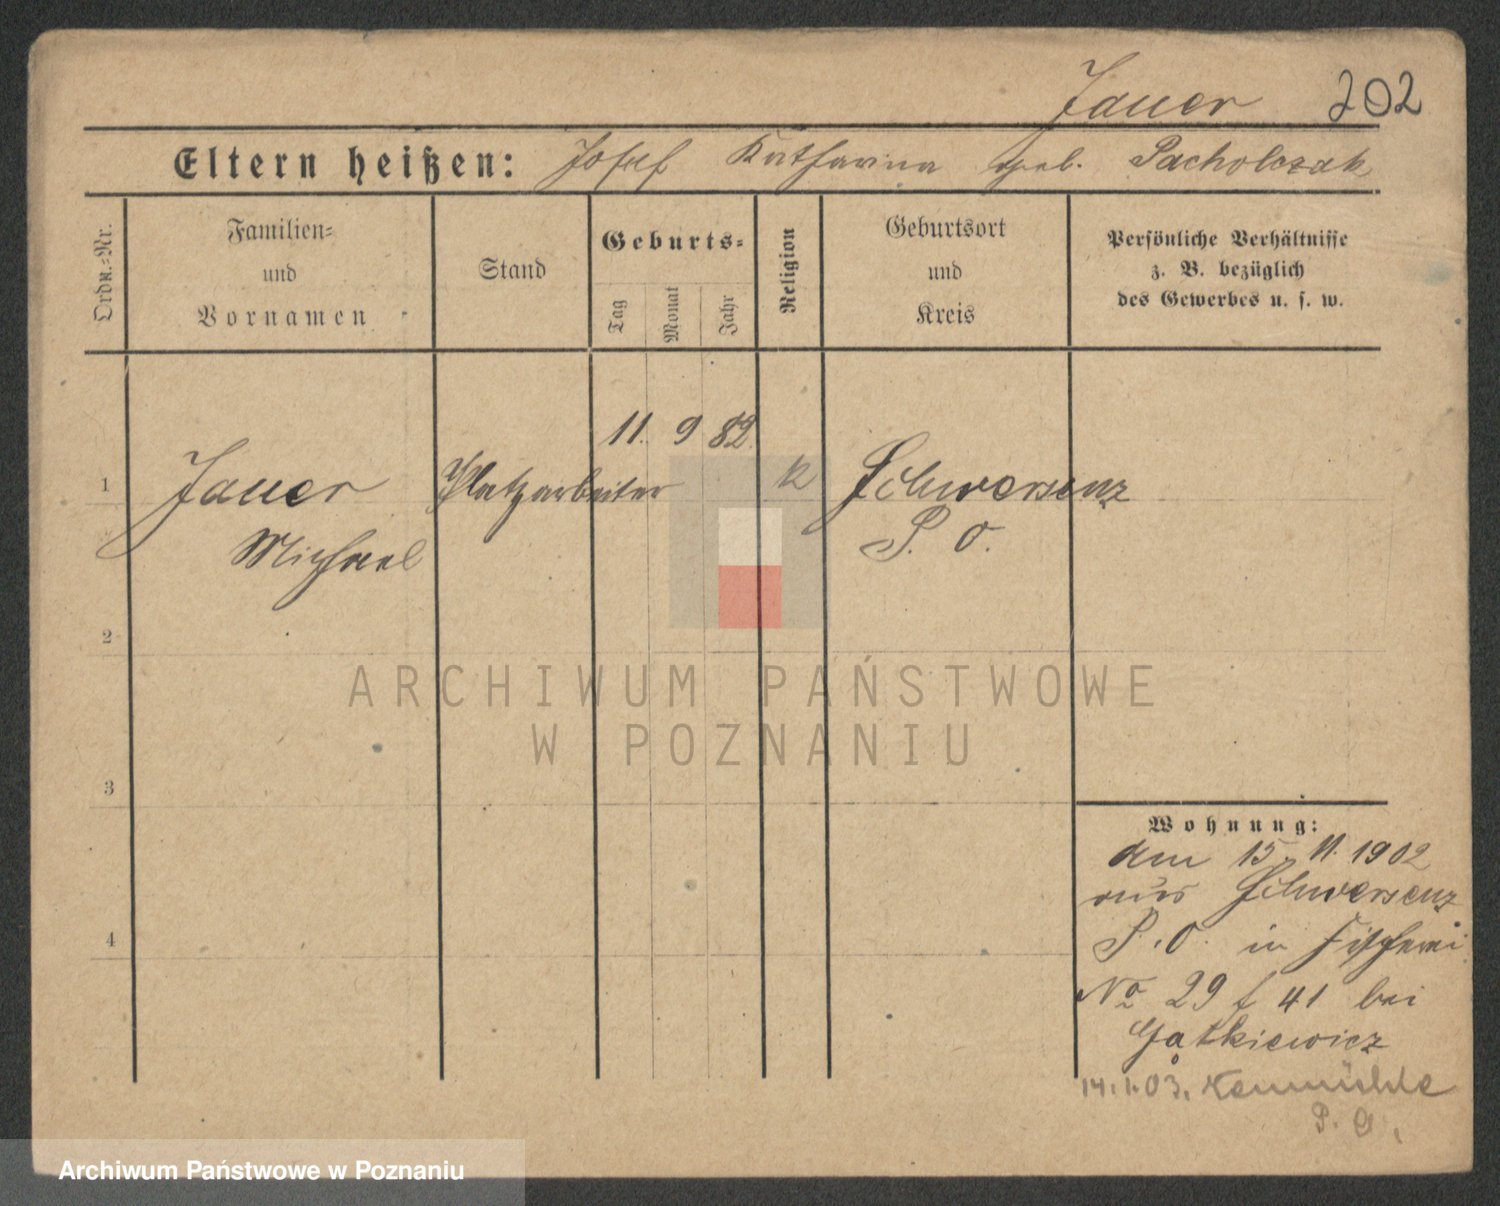 Jauer 202
Eltern heißen: Josef Katharina geb. Pacholczak
Ordn.-Nr.
Familien-
und
Vornamen
Stand
Geburts-
Tag
Monat
Jahr
Religion
Geburtsort
und
Kreis
Persönliche Verhältnisse
z. B. bezüglich
des Gewerbes u. s. w.
11. 9 82.
1 Jauer Platzarbeiter k Schwersenz
Michael P. O.
2
3
4
Wohnung:
am 15. 11. 1902
aus Schwersenz
P. O. in Fischerei
No 29 f 41 bei
14. 1. 03.
P. O.
ARCHIWUM PAŃSTWOWE
W POZNANIU
Archiwum Państwowe w Poznaniu